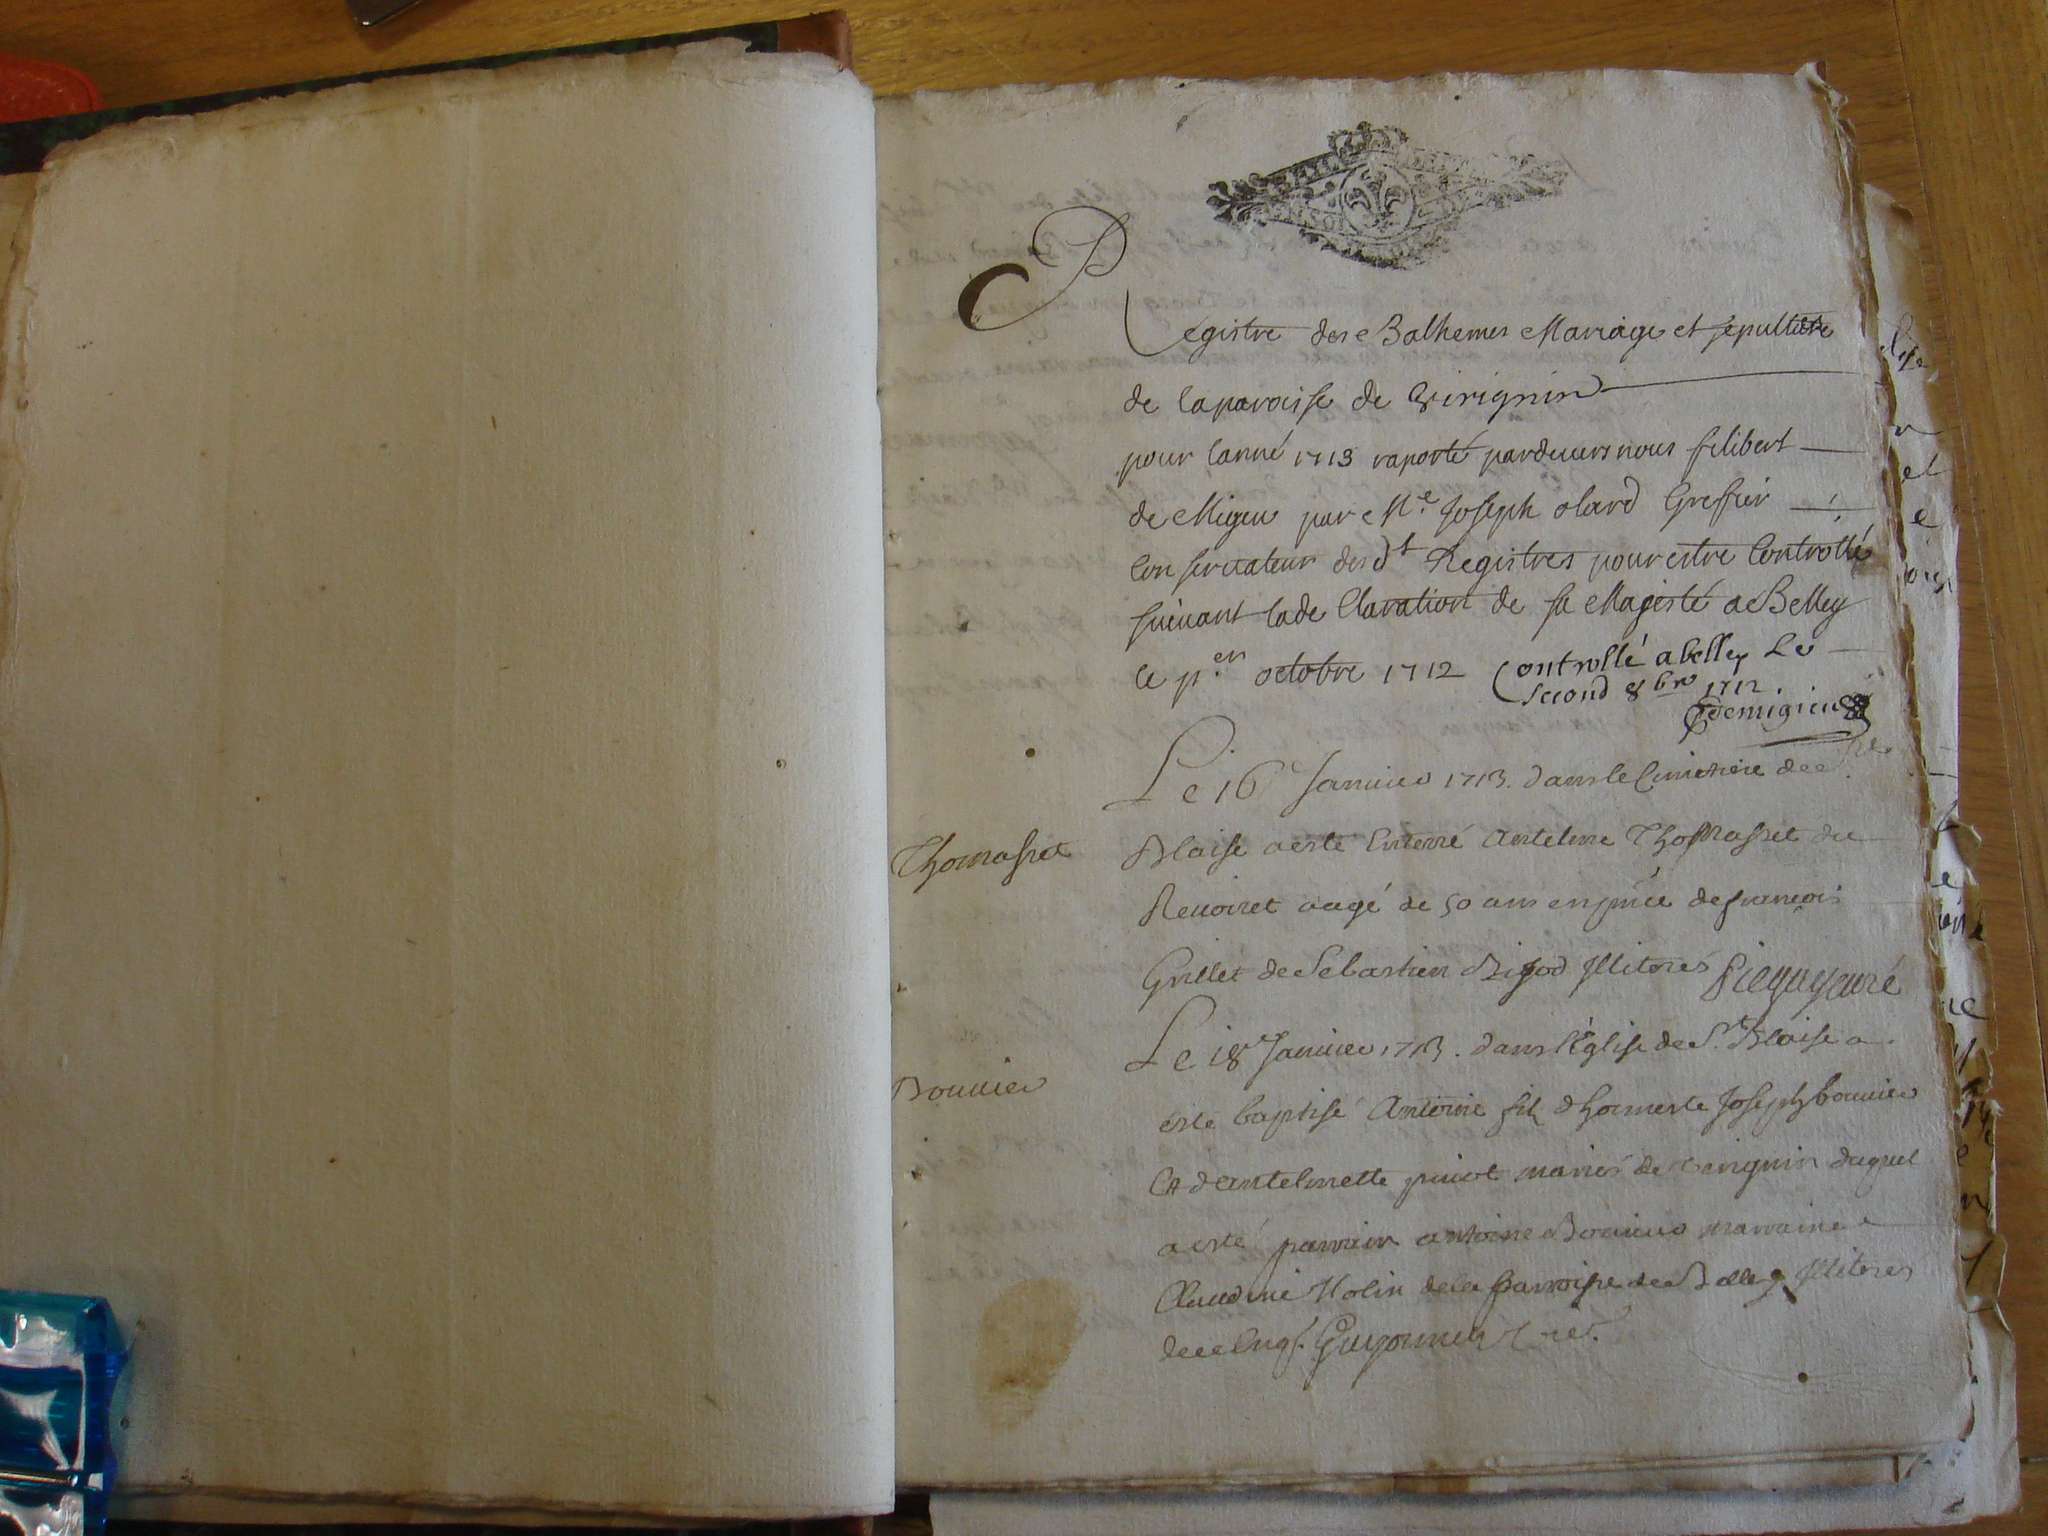 Registre des Bathemes Mariage et sepulture
de la paroisse de Virignin
pour lanné 1713 raporté pardevers nous filibert
de Migieu par Me. Joseph olard Greffier
Conservateur desdt Registres pour estre Controllé
suivant la de Claration de sa Majesté a Belley
le pr.en octobre 1712 Controllé a belley Le
second 8bre 1712.
Demigieu
Le 16e Janvier 1713. dans le Cimetiere de
Thomasset
Blaise a esté Enterré Antelme Thomasset du
Revoiret aagé de 50 ans en pnce de francois
Grillet de Sebastien Illiteres curé
Le 18e Janvier 1713. dans l'Eglise de St. Blaise a
Bouvier
esté baptisé Antoine fil d'honneste Joseph bouvier
Et d'antelmette mariés de virignin duquel
a esté parrain antoine Bouvier marraine
Claudine de la parroisse de Belley Illiteres
de ce Enqs.